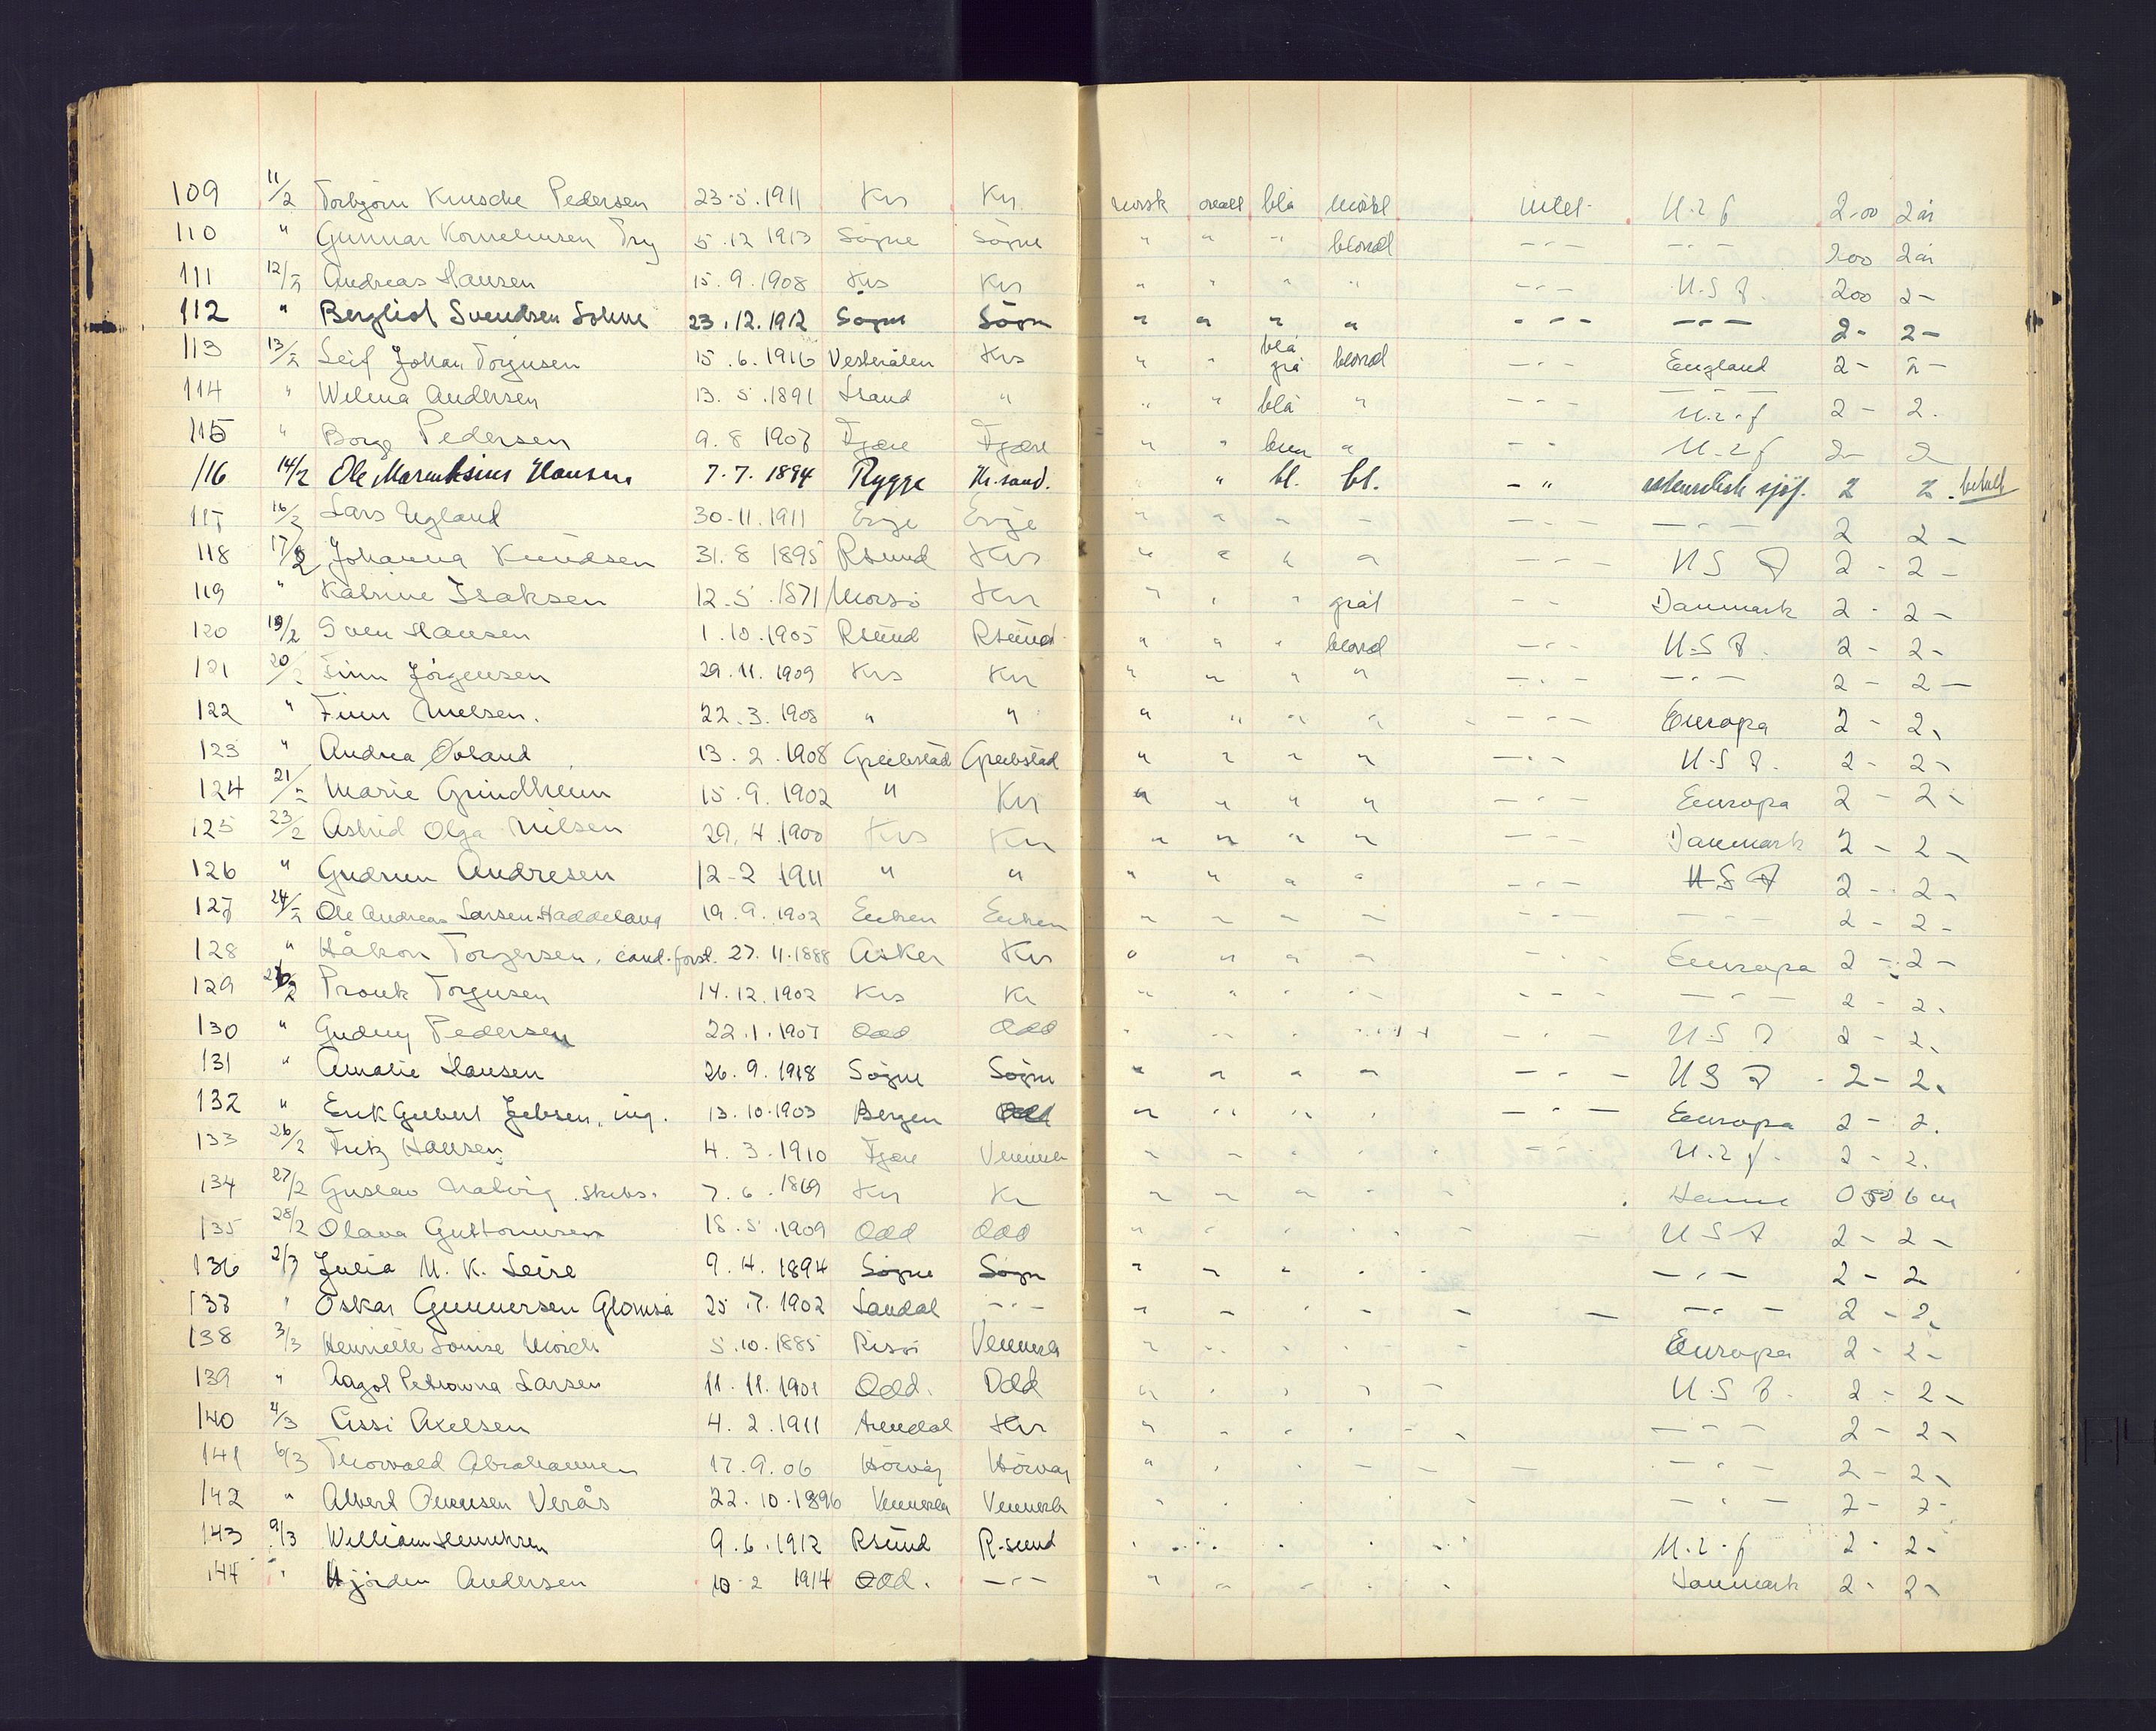 109 11/2 Torbjörn Knusche Pedersen 23-5.1911 Krs Krs norsk ovalt blå mörkt intet U.r.f 2.00 2 år
110 " Gunnar Korneliusen Try 5.12 1913 Sögne Sögne " " " blond -"- -"- 2.00 2 år
111 12/2 Andreas Hansen 15.9.1908 Krs Krs " " " " -"- U.S.A. 200 2-
112 " Bergliot Svendsen Sohne 23.12.1912 Sögne Sögne " " " " -"- -"- 2- 2-
113 13/2 Leif Johan Torjusen 15.6.1916 Vesterålen Krs " " blå grå blond -"- England 2- 2-
114 " Wilma Andersen 13.5.1891 Strand " " " blå " -"- U.r.f 2- 2.
115 " Borge Pedersen 9.8 1907 Fjære Fjære " " brun " -"- U-r f 2- 2
116 14/2 Ole Hansen 7.7.1894 Rygge Kr.sand. " bl. bl. -" utenriksk sjöf. 2 2. betalt
117 16/2 Lars Ugland 30-11.1911 Evje Evje " " " - -"- -"- 2 2-
118 17/2 Johanna Knudsen 31.8 1895 Rsund Krs " " " " -"- U S A 2- 2-
119 " Katrine Isaksen 12.5.1871 Morsö Krs " " " grå -"- Danmark 2- 2-
120 19/2 Sven Hansen 1.10.1905 Rsund Rsund " " " blond -"- U.S.A. 2- 2-
121 20/2 Finn Jörgensen 29.11.1909 Krs Krs " " " " -"- -"- 2- 2-
122 " Finn Nielsen. 22.3.1908 " " " " " " -"- Europa 2- 2.
123 " Andrea Övland 13.2.1908 Greibstad Greibstad " " " " -"- U.S.A. 2- 2-
124 21/2 Marie Grindheim 15.9.1902 " Krs " " " " -"- Europa 2- 2-
125 23/2 Astrid Olga Nilsen 29.4.1900 Krs Krs " " " " -"- Danmark 2- 2-
126 " Gudrun Andresen 12-2 1911 " " " " " " -"- U S A 2- 2-
127 24/2 Ole Andreas Larsen Haddeland 19.9.1902 Eiken Eiken " " " - -"- -"- 2- 2-
128 " Håkon Torgersen, cand.forst. 27.11.1888 Asker Krs " " " " -"- Europa 2- 2-
129 /2 Torjusen 14.12.1902 Krs Kr " " " " -"- -"- 2- 2.
130 " Gudny Pedersen 22.1.1907 Odd Odd " " " " -"- U S A 2- 2.
131 " Amalie Hansen 26.9.1918 Sögne Sögne " " " " -"- U S A 2- 2.
132 " Erik Grebert Jebsen, ing. 13.10.1903 Bergen " " " " -"- Europa 2- 2.
133 26/2 Fritz Hansen 4.3.1910 Fjære Vennesla " " " " -"- U.r.f. 2- 2.
134 27/2 Gustav Natvig. skibs. 7.6.1869 Krs Kr " " " " 0.50 6 m
135 28/2 Olava Guttormsen 18.5.1909 Odd Odd " " " " - U S A 2- 2-
136 2/3 Julia M. K. Leire 9.4.1894 Sögne Sögne " " " " -"- 2- 2
137 " Oskar Gunnersen Glomså 25.7.1902 Laudal -"- " - - - - -"- 2- 2.
138 3/3 Henriette Louise Morch 5.10.1885 Risör Vennesla " " " - Europa 2- 2-
139 " Aagot Petrowna Larsen 11.11.1901 Odd. Odd " " " " - U.S.A. 2- 2-
140 4/3 Cissi Axelsen 4.2.1911 Arendal Krs " " " " -"- 2- 2-
141 6/3 Thorvald Abrahamsen 17.9.06 Hövåg Hövåg " " " - - -"- 2- 2.
142 " Albert Verås 22.10.1896 Vennesla Vennesla " " " " -"- 2- 2-
143 9/3 William Henriksen 9.6.1912 Rsund R-sund " " " " U.r.f 2- 2-
144 " Hjördis Andersen 10-2 1914 Odd. -"- " " " " Danmark 2- 2-